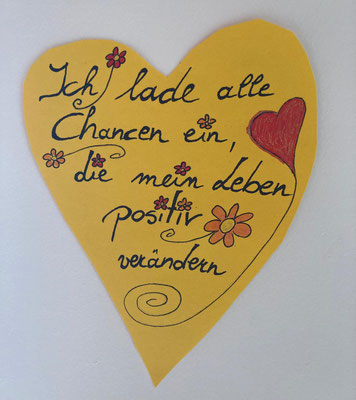 Ich lade alle
Chancen ein,
die mein Leben
positiv
verändern